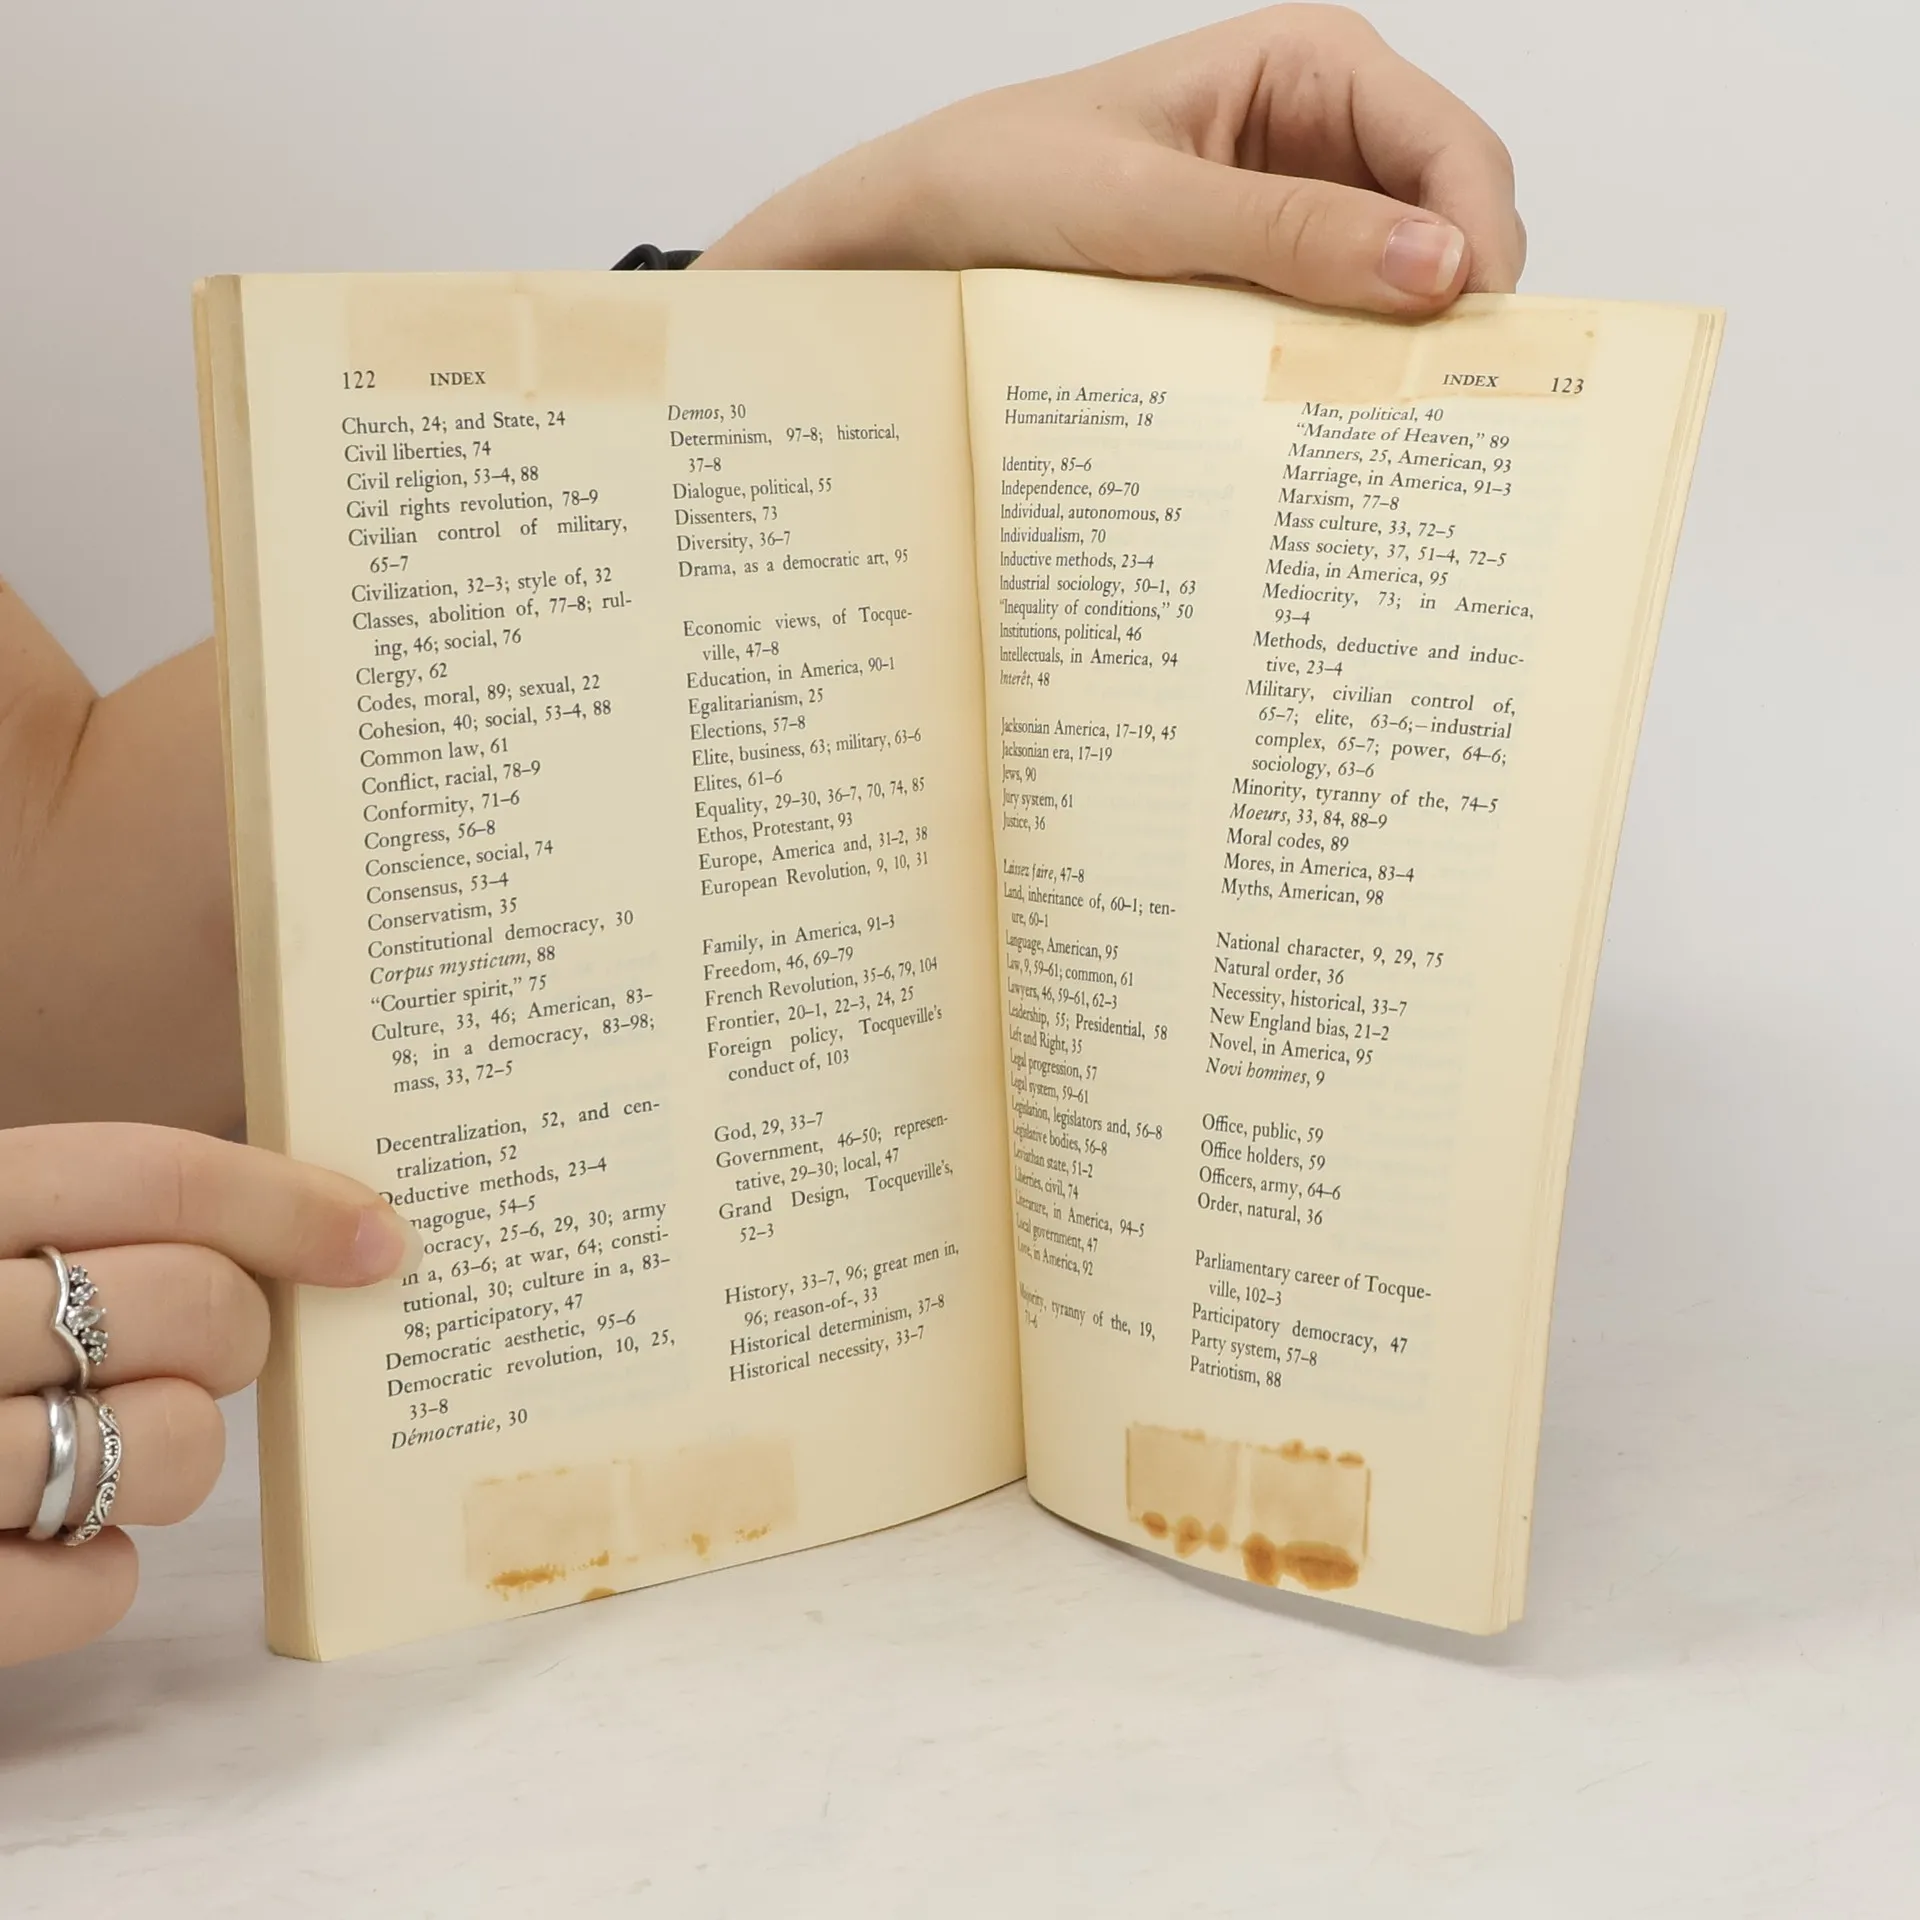 122 INDEX
Church, 24; and State, 24
Civil liberties, 74
Civil religion, 53–4, 88
Civil rights revolution, 78–9
Civilian control of military,
65–7
Civilization, 32–3; style of, 32
Classes, abolition of, 77–8; rul-
ing, 46; social, 76
Clergy, 62
Codes, moral, 89; sexual, 22
Cohesion, 40; social, 53–4, 88
Common law, 61
Conflict, racial, 78–9
Conformity, 71–6
Congress, 56–8
Conscience, social, 74
Consensus, 53–4
Conservatism, 35
Constitutional democracy, 30
Corpus mysticum, 88
“Courtier spirit,” 75
Culture, 33, 46; American, 83–
98; in a democracy, 83–98;
mass, 33, 72–5
Decentralization, 52, and cen-
tralization, 52
Deductive methods, 23–4
magogue, 54–5
ocracy, 25–6, 29, 30; army
in a, 63–6; at war, 64; consti-
tutional, 30; culture in a, 83–
98; participatory, 47
Democratic aesthetic, 95–6
Democratic revolution, 10, 25,
33–8
Démocratie, 30
Demos, 30
Determinism, 97–8; historical,
37–8
Dialogue, political, 55
Dissenters, 73
Diversity, 36–7
Drama, as a democratic art, 95
Economic views, of Tocque-
ville, 47–8
Education, in America, 90–1
Egalitarianism, 25
Elections, 57–8
Elite, business, 63; military, 63–6
Elites, 61–6
Equality, 29–30, 36–7, 70, 74, 85
Ethos, Protestant, 93
Europe, America and, 31–2, 38
European Revolution, 9, 10, 31
Family, in America, 91–3
Freedom, 46, 69–79
French Revolution, 35–6, 79, 104
Frontier, 20–1, 22–3, 24, 25
Foreign policy, Tocqueville’s
conduct of, 103
God, 29, 33–7
Government, 46–50; represen-
tative, 29–30; local, 47
Grand Design, Tocqueville’s,
52–3
History, 33–7, 96; great men in,
96; reason-of-, 33
Historical determinism, 37–8
Historical necessity, 33–7
INDEX 123
Home, in America, 85
Humanitarianism, 18
Identity, 85–6
Independence, 69–70
Individual, autonomous, 85
Individualism, 70
Inductive methods, 23–4
Industrial sociology, 50–1, 63
“Inequality of conditions,” 50
Institutions, political, 46
Intellectuals, in America, 94
Interêt, 48
Jacksonian America, 17–19, 45
Jacksonian era, 17–19
Jews, 90
Jury system, 61
Justice, 36
Laissez faire, 47–8
Land, inheritance of, 60–1; ten-
ure, 60–1
Language, American, 95
Law, 9, 59–61; common, 61
Lawyers, 46, 59–61, 62–3
Leadership, 55; Presidential, 58
Left and Right, 35
Legal progression, 57
Legal system, 59–61
Legislation, legislators and, 56–8
Legislative bodies, 56–8
Leviathan state, 51–2
Liberties, civil, 74
Literature, in America, 94–5
Local government, 47
Love, in America, 92
Majority, tyranny of the, 19,
71–6
Man, political, 40
“Mandate of Heaven,” 89
Manners, 25, American, 93
Marriage, in America, 91–3
Marxism, 77–8
Mass culture, 33, 72–5
Mass society, 37, 51–4, 72–5
Media, in America, 95
Mediocrity, 73; in America,
93–4
Methods, deductive and induc-
tive, 23–4
Military, civilian control of,
65–7; elite, 63–6;–industrial
complex, 65–7; power, 64–6;
sociology, 63–6
Minority, tyranny of the, 74–5
Moeurs, 33, 84, 88–9
Moral codes, 89
Mores, in America, 83–4
Myths, American, 98
National character, 9, 29, 75
Natural order, 36
Necessity, historical, 33–7
New England bias, 21–2
Novel, in America, 95
Novi homines, 9
Office, public, 59
Office holders, 59
Officers, army, 64–6
Order, natural, 36
Parliamentary career of Tocque-
ville, 102–3
Participatory democracy, 47
Party system, 57–8
Patriotism, 88